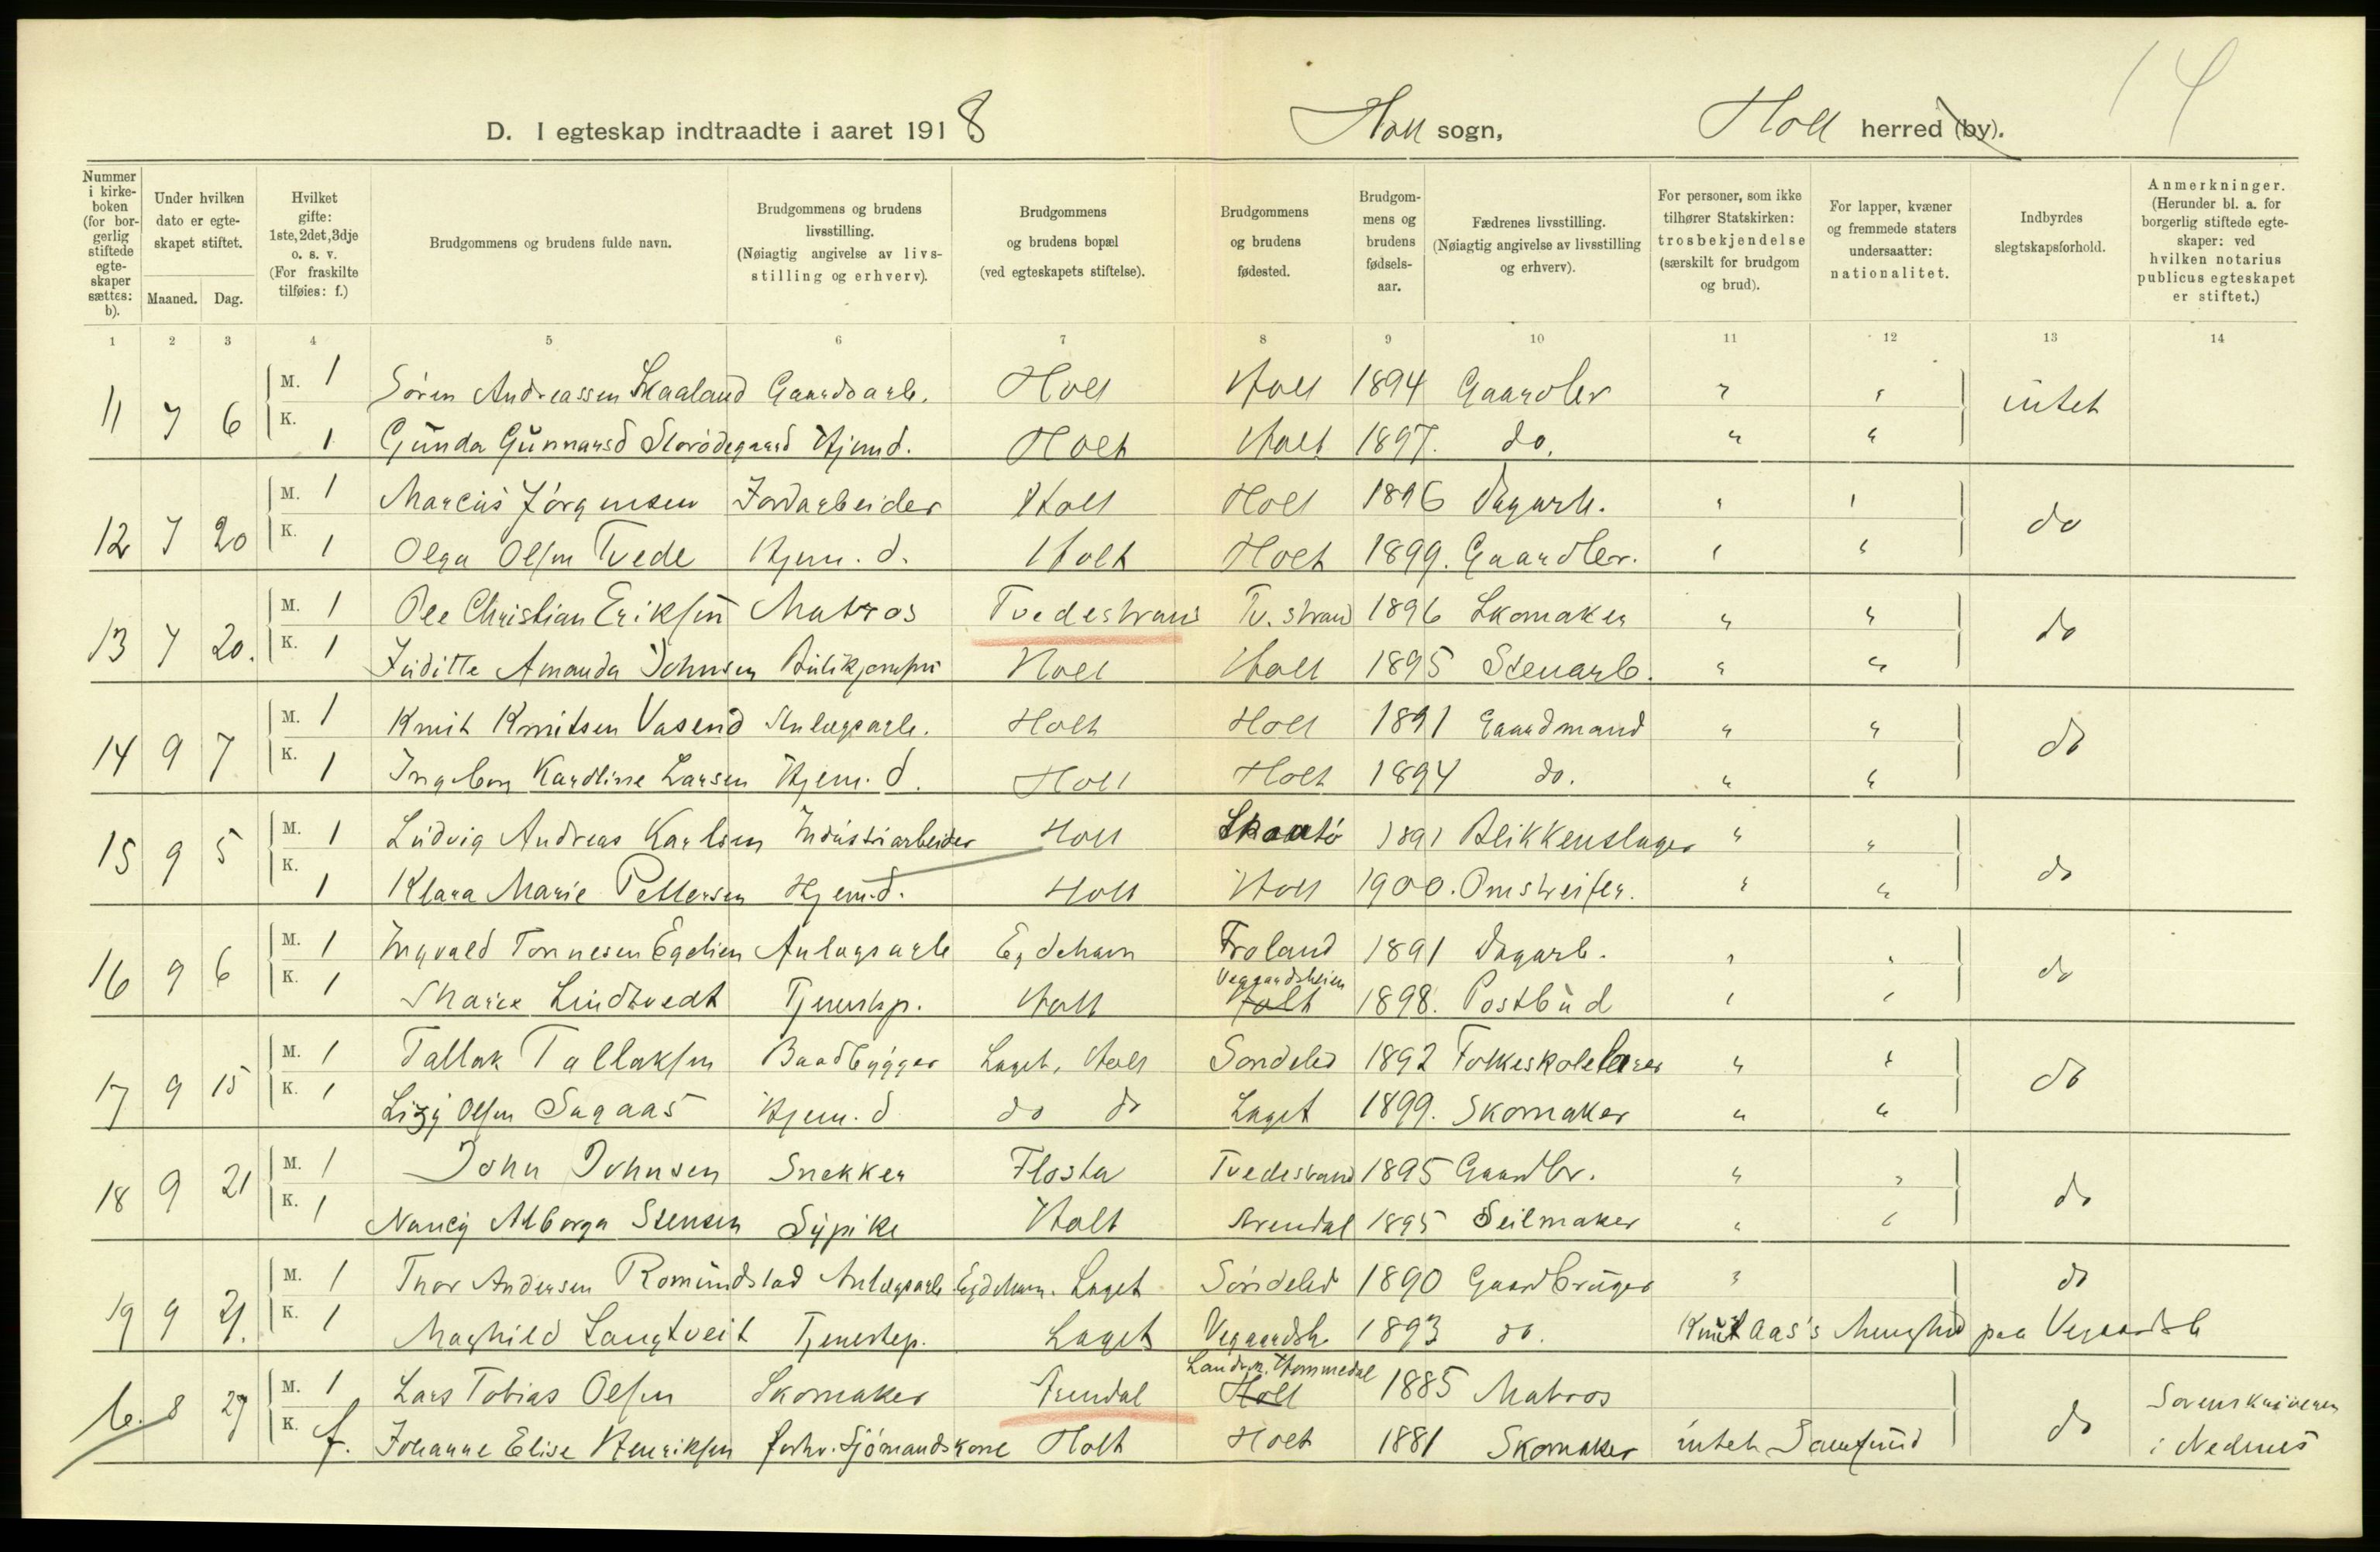 14
D. I egteskap indtraadte i aaret 1918 Holt sogn, Holt herred (by).
Nummer i kirkeboken (for borgerlig stiftede egteskaper sættes: b).
Under hvilken dato er egteskapet stiftet.
Maaned. Dag.
Hvilket gifte: 1ste, 2det, 3dje o. s. v. (For fraskilte tilføies: f.)
Brudgommens og brudens fulde navn.
Brudgommens og brudens livsstilling. (Nøiagtig angivelse av livsstilling og erhverv).
Brudgommens og brudens bopæl (ved egteskapets stiftelse).
Brudgommens og brudens fødested.
Brudgommens og brudens fødselsaar.
Fædrenes livsstilling. (Nøiagtig angivelse av livsstilling og erhverv).
For personer, som ikke tilhører Statskirken: trosbekjendelse (særskilt for brudgom og brud).
For lapper, kvæner og fremmede staters undersaatter: nationalitet.
Indbyrdes slegtskapsforhold.
Anmerkninger. (Herunder bl. a. for borgerlig stiftede egteskaper: ved hvilken notarius publicus egteskapet er stiftet.)
1 2 3 4 5 6 7 8 9 10 11 12 13 14
11 7 6 M. 1 Sören Andreassen Skaaland Gaardsarb. Holt Holt 1894 Gaardbr " " intet
K. 1 Gunda Gunnarsd Hjemd. Holt Holt 1897. do. " "
12 7 20 M. 1 Marcus Jörgensen Jordarbeider Holt Holt 1896 Dagarb. " " do
K. 1 Olga Olsen Tvede Hjem. d. Holt Holt 1899. Gaardbr. " "
13 7 20. M. 1 Ole Christian Eriksen Matros Tvedestrand Tv. strand 1896 Skomaker " " do
K. 1 Juditte Amanda Johnsen Butikjomfru Holt Holt 1895 Stenarb. " "
14 9 7 M. 1 Knut Knutsen Vasend Anlægsarb. Holt Holt 1891 Gaardmand " " do
K. 1 Ingeborg Karoline Larsen Hjem. d. Holt Holt 1894 do. " "
15 9 5 M. 1 Ludvig Andreas Karlsen Industriarbeider Holt Skaatö 1891 Blikkenslager " " do
K. 1 Klara Marie Pettersen Hjem.d. Holt Holt 1900. Omstreifer. " "
16 9 6 M. 1 Ingvald Tonnesen Egelien Anlægsarb Eydehavn Froland 1891 Dagarb. " " do
Vegaardsheien
K. 1 Marie Lindtvedt Tjenestep. Holt Holt 1898. Postbud " "
17 9 15 M. 1 Tallak Tallaksen Baadbygger Laget, Holt Söndeled 1892 Folkeskolelærer " " do
K. 1 Lizzy Olsen Sagaas Hjem. d do do Laget 1899. Skomaker " "
18 9 21 M. 1 John Johnsen Snekker Flosta Tvedestrand 1895 Gaardbr. " " do
K. 1 Nancy Alborga Stensen Sypike Holt Arendal 1895 Seilmaker " "
19 9 21. M. 1 Thor Andersen Romundstad Anlægsarb Eydehavn. Laget Söndeled 1890 Gaardbruger " do
K. 1 Maghild Langtveit Tjenestep. Laget Vegaardsh. 1893 do. Knut Aas's Menghed paa Vegaardsh
Landvik. Hommedal
b. 8 27 M. 1 Lars Tobias Olsen Skomaker Arendal Holt 1885 Matros do Sorenskriveren
K. f. Johanne Elise Henriksen forhv. Sjömandskone Holt Holt 1881 Skomaker intet Samfund i Nedenes